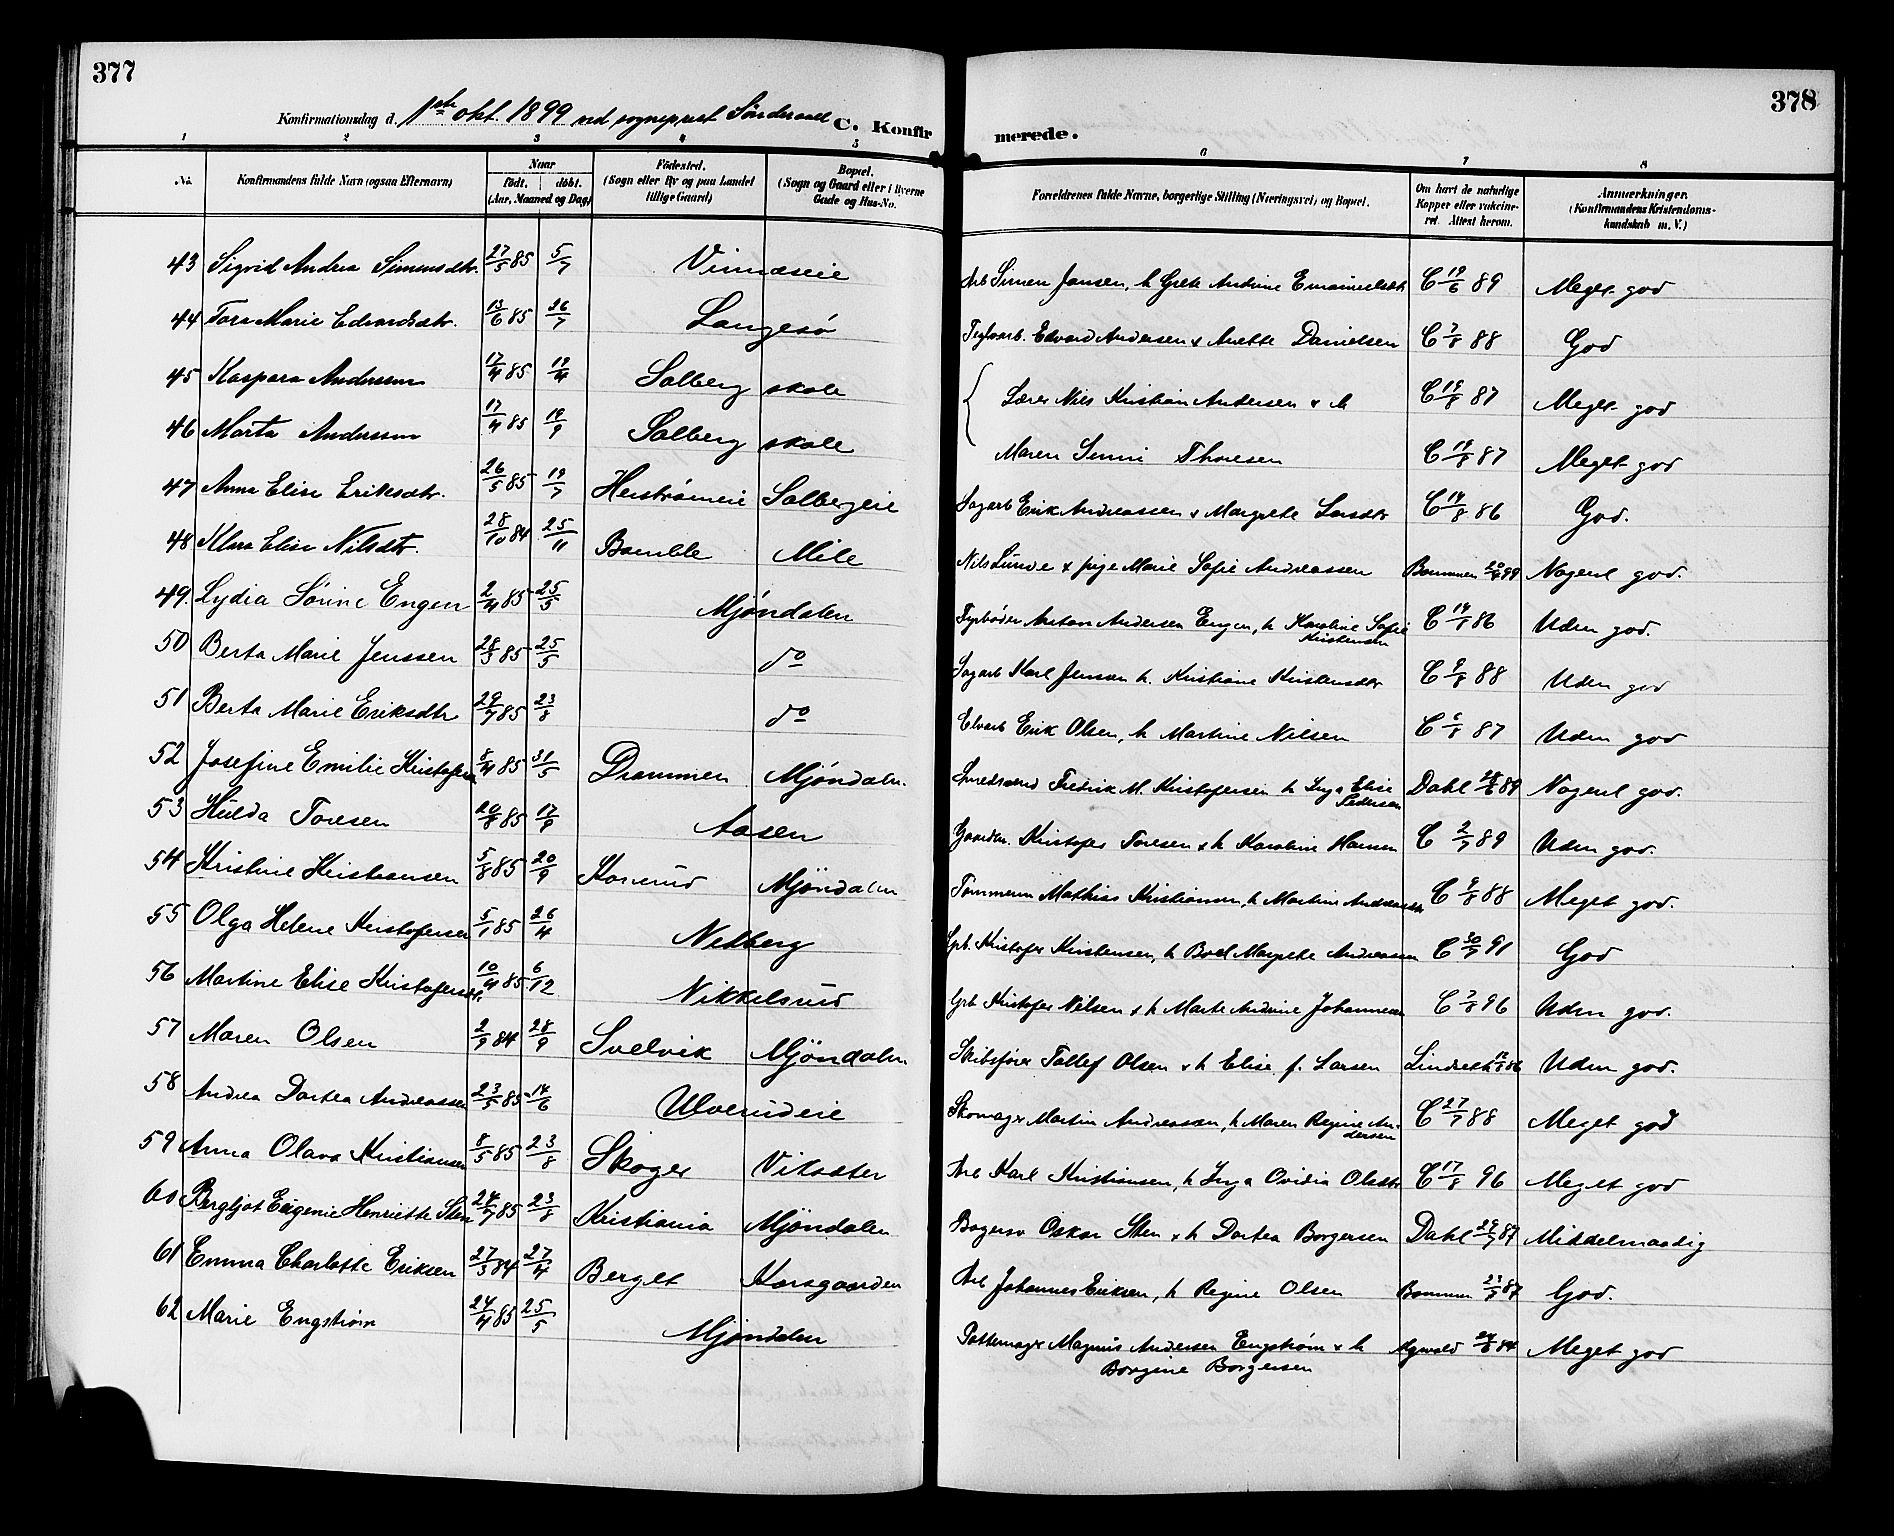 377
378
Konfirmationsdag d. 1ste okt. 1899 ved sogneprest Sønderaal C. Konfir
merede.
1 2 3 4 5 6 7 8
No. Konfirmandens fulde Navn (ogsaa Efternavn) Naar födt. döbt. (Aar, Maaned og Dag) Födested. (Sogn eller By og paa Landet tillige Gaard) Bopæl. (Sogn og Gaard eller i Byerne Gade og Hus-No. Forældrenes fulde Navne, borgerlige Stilling (Næringsvei) og Bopæl. Om havt de naturlige Kopper eller vakcineret. Attest herom. Anmærkninger. (Konfirmandens Kristendomskundskab m. V.)
43 Sigrid Andrea Simensdtr. 27/5 85 5/7 Vinnæseie Arb Simen Jansen, h Grete Andrine Emanuelsdtr C 19/6 89 Meget god
44 Tora Marie Edvardsdtr. 13/6 85 26/7 Langesø Teglarb. Edvard Andersen & Anette Danielsen C 7/8 88 God
45 Kaspara Andersen 17/4 85 19/4 Solberg skole { Lærer Nils Kristian Andersen & h C 19/8 87 Meget god
46 Marta Andersen 17/4 85 19/9 Solberg skole Maren Thoresen C 19/8 87 Meget god
47 Anna Elise Eriksdtr. 26/5 85 19/7 Herstrømeie Solbergeie Sagarb Erik Andreassen & Margrete Larsdtr C 14/8 86 God.
48 Klara Elise Nilsdtr. 28/10 84 25/11 Bamble Mile Nils Lunde & pige Marie Sofie Andreassen 99 Noget god.
49. Lydia Sørine Engen 2/4 85 25/5 Mjøndalen Fyrbøder Anton Andersen Engen, h Karoline Sofie Kristensen C 86 Uden god.
50 Berta Marie Jenssen 28/3 85 25/5 do Sagarb Karl Jensen h. Kristiane Kristensdtr C 9/8 88 Uden god
51 Berta Marie Eriksdtr 29/7 85 23/8 do Elvarb Erik Olsen, h Martine Nilsen C 6/8 87 Uden god
52 Josefine Emilie Kristofersen 8/4 85 31/5 Drammen Mjøndalen. Fredrik M. Kristofersen h Inga Elise Pedersen Dahl 89 Noget god.
53 Hulda Toresen 85 17/9 Aasen Gaardm. Kristofer Toresen & h Karoline Hansen C 2/7 89 Uden god.
54 Kristine Kristiansen 5/8 85 20/9 Mjøndalen Tømmerm Mathias Kristiansen, h Martine Andreasdtr C 9/8 88 Meget god.
55 Olga Helene Kristofersen 5/1 85 26/4 Nedberg Kristofer Kristensen, h Boel Margrete Andreassen C 30/7 91 God
56 Martine Elise Kristofersdtr. 10/4 85 6/12 Nikkelsrud Kristofer Nilsen & h Marte Andrine Johannesen C 7/8 96 Uden god.
57 Maren Olsen 2/9 84 28/9 Svelvik Mjøndalen Skibsfører Tollef Olsen & h Elise f. Larsen 86 Uden god.
58 Andrea Dortea Andreassen 23/5 85 14/6 Ulverudeie Skomager Martin Andreassen, h Maren Regine Andersen C 27/7 88 Meget god
59 Anna Olava Kristiansen 8/5 85 23/8 Skoger Vikaater Arb Karl Kristiansen, h Inga Ovidia Olsdtr C 17/8 96 Meget god
60 Bergljot Eugenie Henriette Sten 24/7 85 23/8 Kristiania Mjøndalen Bagersv Oskar Sten & h Dortea Borgersen Dahl 29/7 87 Middelmaadig
61 Emma Charlotte Eriksen 27/3 84 27/4 Berget Korsgaarden Arb Johannes Eriksen, h Regine Olsen 23/7 87 God.
62 Marie Engstrøm 24/4 85 25/5 Mjøndalen Pottemager Magnus Andersen Engstrøm & h Borgine Borgersen 84 Meget god